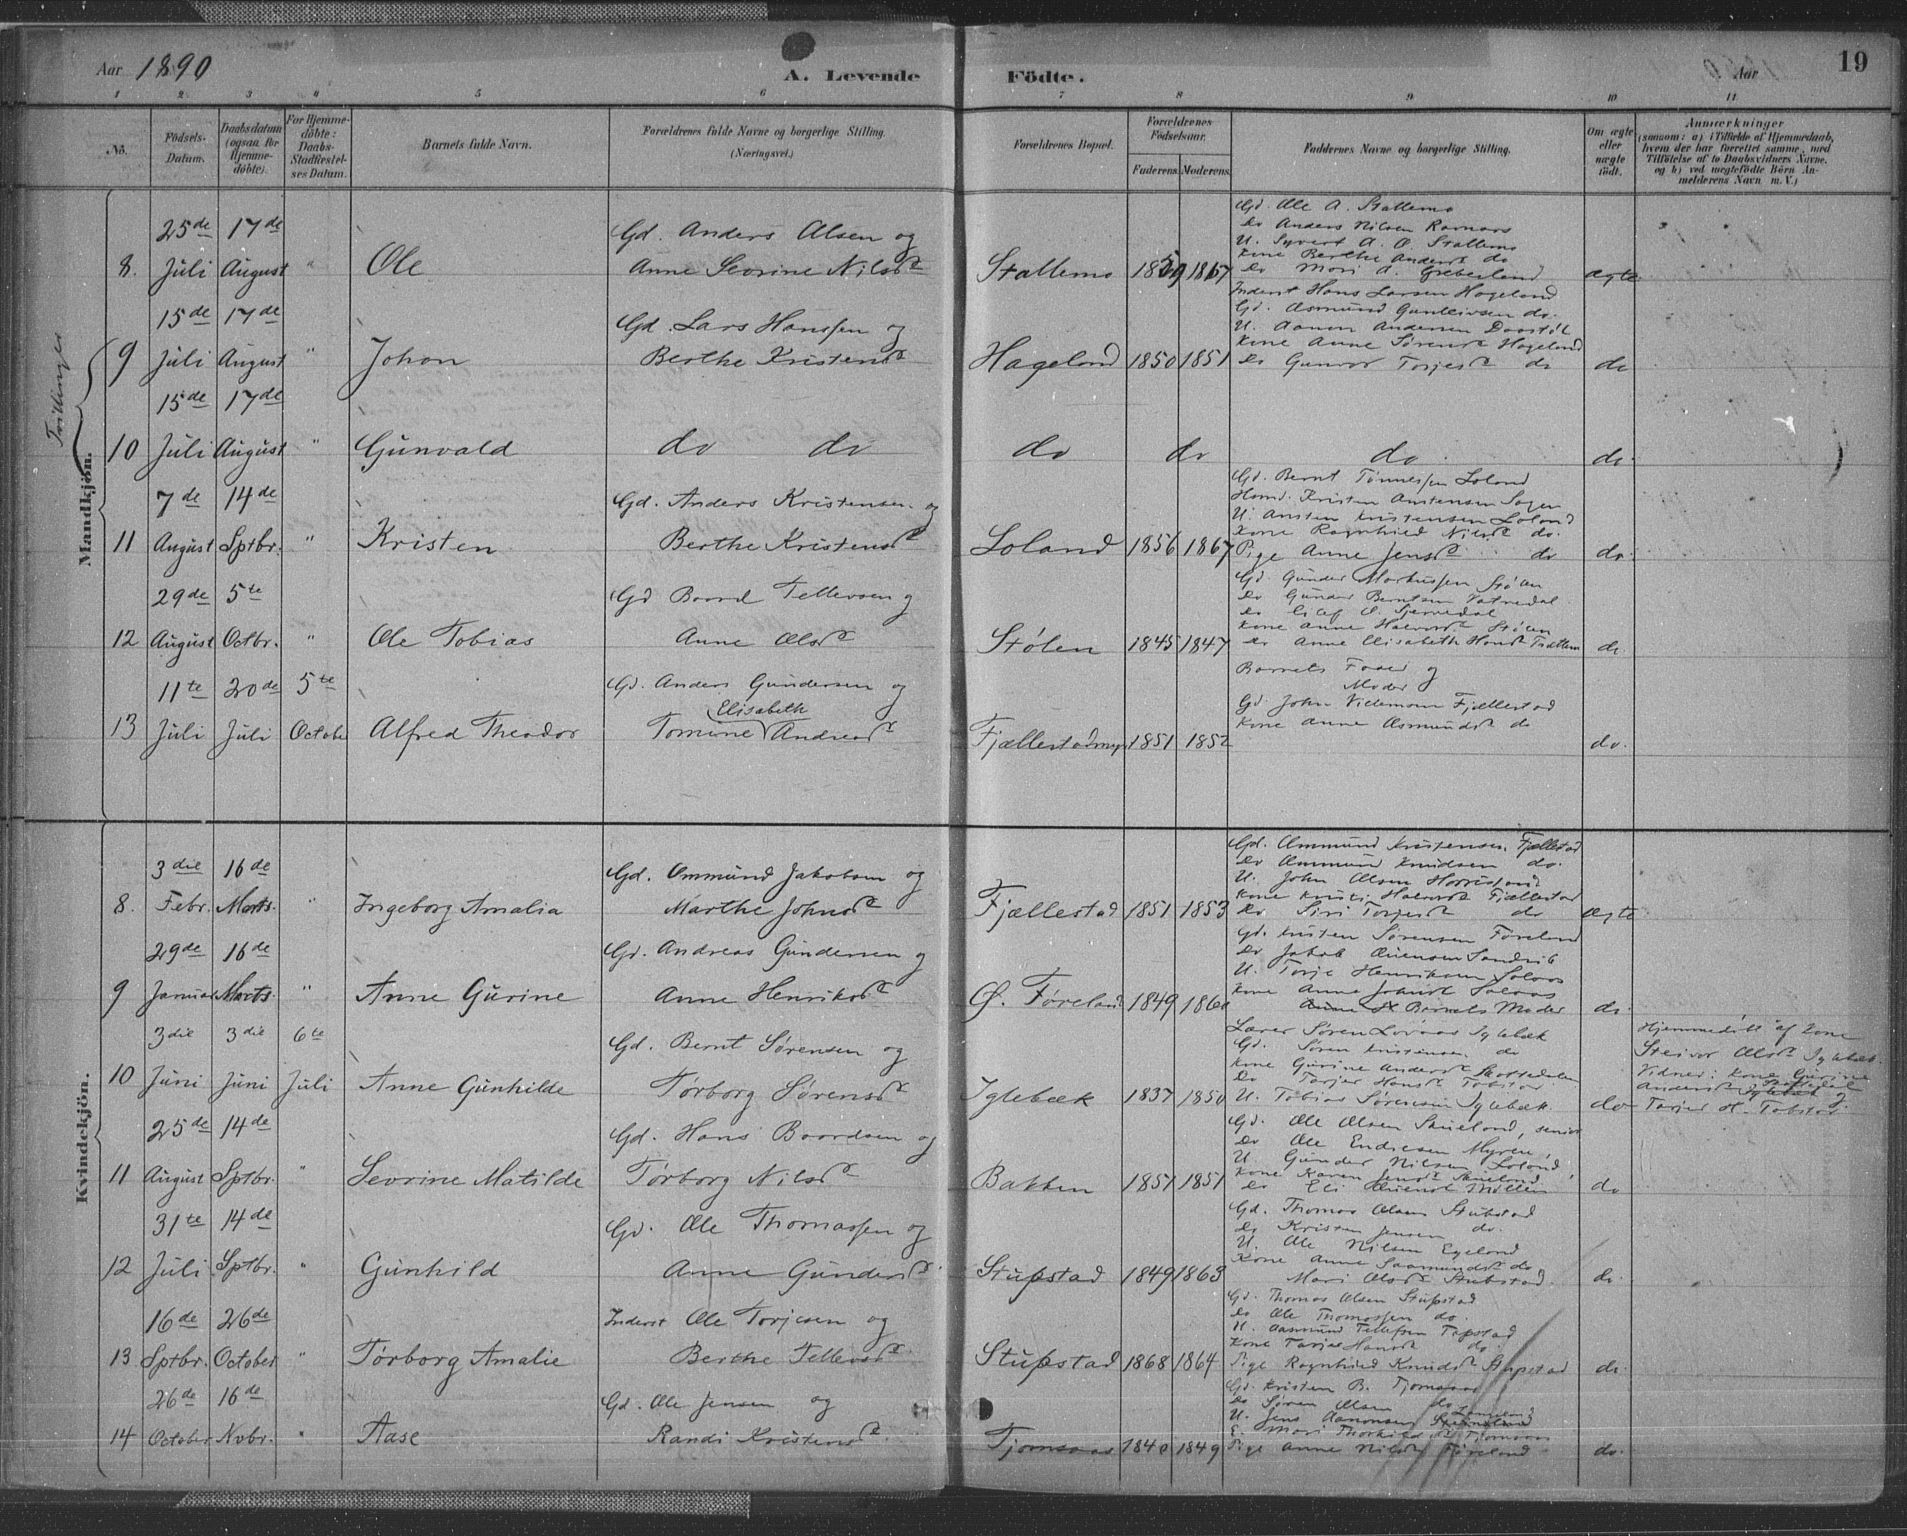 Aar 1890
A. Levende
Födte.
Aar
19
1 2 3 4 5 6 7 8 9 10 11
No.
Födsels-Datum.
Daabsdatum (ogsaa for Hjemme-döbte).
For Hjemme-döbte: Daabs-Stadfæstel-ses Datum.
Barnets fulde Navn.
Forældrenes fulde Navne og borgerlige Stilling. (Næringsvei.)
Forældrenes Bopæl.
Forældrenes Födselsaar.
Faderens. Moderens.
Faddernes Navne og borgerlige Stilling.
Om ægte eller uægte födt.
Anmærkninger
(saasom: a) i Tilfælde af Hjemmedaab, hvem der har forrettet samme, med Tilföielse af to Daabsvidners Navne, og b) ved uægtefödte Börn An-melderens Navn m. V.)
Mandkjön.
Tvillinger
25de 17de
Gd. Anders Olsen og
8. Juli August " Ole
Anne Sevrine Nilsd
Stallemo 1859 1867
Gd. Ole A. Stallemo
do Anders Nilsen
U. Syvert A. O. Stallemo
Kone Berthe Andersd do
do Mari A.
ægte
15de 17de
Gd. Lars Hanssen og
9 Juli August " Johan
Berthe Kristensd
Hageland 1850 1851
Inderst Hans Larsen Hageland
Gd. Asmund Gunleivsen do.
U. Aanen Andersen
Kone Anne Sørensd Hageland
do Gunvor Torjesd do
do
15de 17de
10 Juli August " Gunvald
do do
do do do do.
7de 14de
Gd. Anders Kristensen og
11 August Sptbr. " Kristen
Berthe Kristensd
Loland 1856 1867
Gd. Bernt Tønnessen Loland
Kristen Anstensen
U. Ansten Kristensen Loland
Kone Ragnhild Nilsd do.
Pige Anne Jensd do
do.
29de 5te
Gd Baard Tellevsen og
12 August Octbr. " Ole Tobias
Anne Olsd
Stølen 1845 1847
Gd. Gunder Markussen Stølen
do Gunder Berntsen Vatnedal
Kone Anne Halvorsd Stølen
do Anne Elisabeth Hansd
do
11te 20de 5te
Gd. Anders Gundersen og
Elisabeth
13 Juli Juli Octobr Alfred Theodor
Tomine Andreasd
Fjællestad 1851 1852
Barnets Fader og
Moder
Gd John Villemom Fjællestad
Kone Anne Asmundsd do
do.
Kvindekjön.
3die 16de
Gd. Ommund Jakobsen og
8. Febr. Marts. " Ingeborg Amalia
Marthe Johnsd
Fjællestad 1851 1853
Gd. Ommund Kristensen Fjællestad
do Ommund Knudsen do.
U. John Olsen
Kone Halvorsd Fjællestad
do Siri Torjesd do
ægte
29de 16de
Gd. Andreas Gundersen og
9 Januar Marts. " Anne Gurine
Anne Henriksd
Ø. Føreland 1849
Gd. Kristen Sørensen Føreland
do Jakob Sandvik
U. Torje Henriksen
Kone Anne
Barnets Moder
do
3die 3die 6te
Gd. Bernt Sørensen og
10 Juni Juni Juli Anne Gunhilde
Tørborg Sørensd
Iglebæk 1837 1850
Lærer Søren Iglebæk
Gd. Søren Kristensen do
Kone Gurine Andersd
do Torjer Hansd Tobstad
U. Tobias Sørensen Iglebæk
do
Hjemmedøbt af Kone
Steivor Olsd Iglebæk.
Vidner: Kone Gurine
Andersd
Torjer H. Tobstad
25de 14de
Gd. Hans Baardsen og
11 August Sptbr. " Sevrine Matilde
Tørborg Nilsd
Bakken 1851 1851
Gd. Ole Olsen senior
do Ole Endresen Myren,
U. Gunder Nilsen Loland,
Kone Karen Jensd
do Eli
do
31te 14de
Gd. Ole Thomassen og
12 Juli Sptbr. " Gunhild
Anne Gundersd
Stupstad 1849 1863
Gd. Thomas Olsen Stubstad
do Kristen Jensen do.
U. Ole Nilsen Egeland
Kone Anne Saamundsd do
Mari Olsd Stubstad.
do.
16de 26de
Inderst Ole Torjesen og
13 Sptbr. October " Tørborg Amalie
Berthe Tellevsd
Stupstad 1868 1864
Gd. Thomas Olsen Stupstad
do Ole Thomassen do.
U. Aasmund Tellefsen Tapstad
Kone Torjer Hansd do.
Pige Ragnhild Knudsd Stupstad
do.
26de 16de
Gd. Ole Jensen og
14 October Nvbr. " Aase
Randi Kristensd
Tjomsaas 1849
Gd. Kristen B. Tjomsaas
do Søren Olsen do
U. Jens Aanonsen
Pige Anne Nilsd Føreland
do.